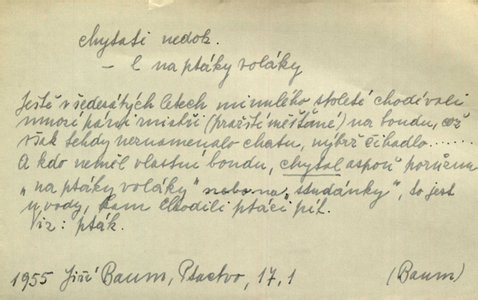 chytati nedok.
– l na ptáky voláky
Ještě v šedesátých letech minulého století chodívali
mnozí páni mistři (pražští měšťané) na boudu, což
však tehdy neznamenalo chatu, nýbrž čihadlo......
A kdo neměl vlastní boudu, chytal aspoň poruznu
„na ptáky voláky" nebo na „studánky", to jest
u vody, kam chodili ptáci pít.
Viz: pták.
1955 Jiří Baum, Ptactvo, 17,1 (Baum)